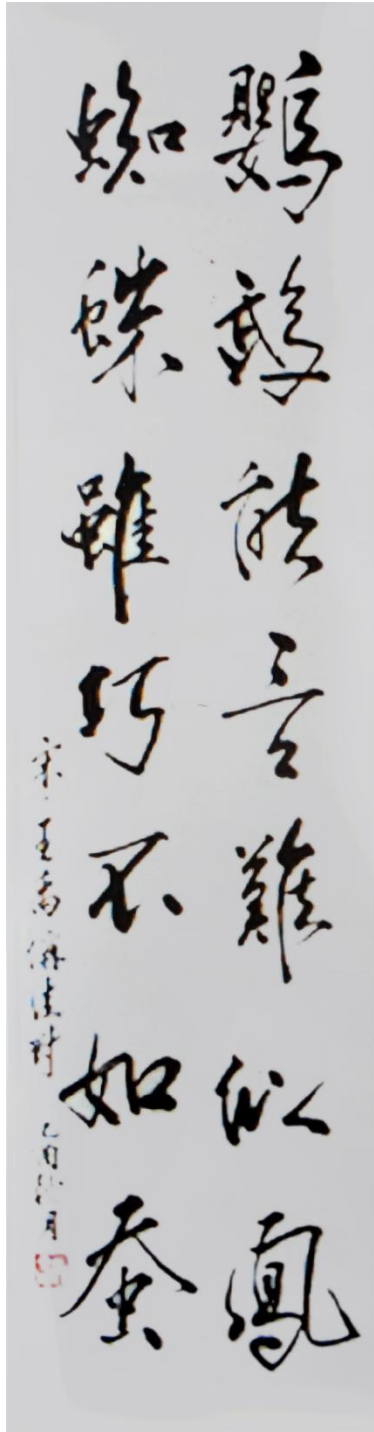 鸚鵡能言難似鳳
蜘蛛雖巧不如蚕
宋·王禹偁佳对 乙酉秋月